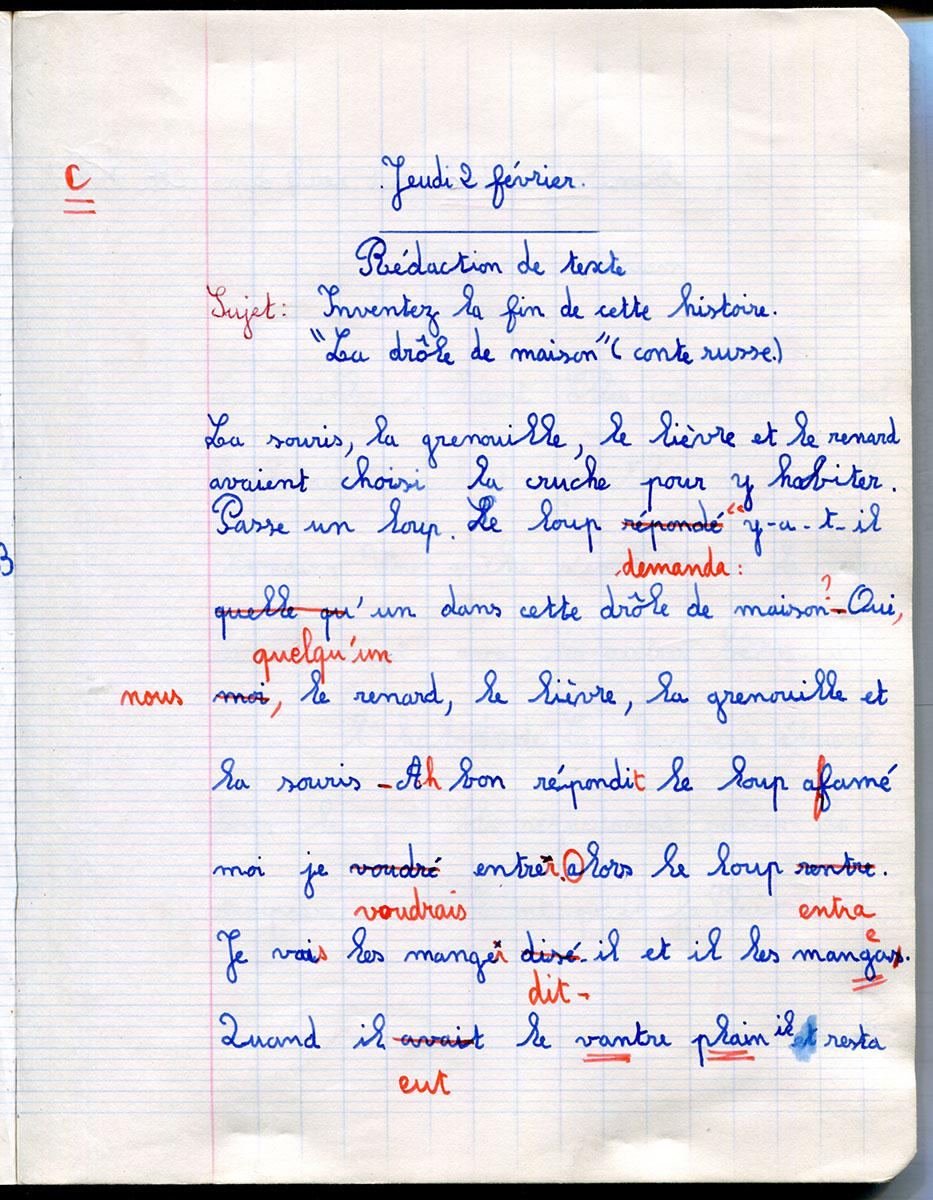 C
Jeudi 2 février.
Rédaction de texte
Sujet: Inventez la fin de cette histoire.
"La drôle de maison" (conte russe.)
La souris, la grenouille, le lièvre et le renard
avaient choisi la cruche pour y habiter.
Passe un loup. Le loup répondé " y-a-t-il
demanda:
quelle qu'un dans cette drôle de maison? - Oui,
quelqu'un
nous moi, le renard, le lièvre, la grenouille et
la souris - Ah bon répondit le loup affamé
moi je voudré entrer. alors le loup rentre.
voudrais entra
Je vais les manger disé-il et il les mangeas.
dit-
Quand il avait le vantre plain il et resta
eut